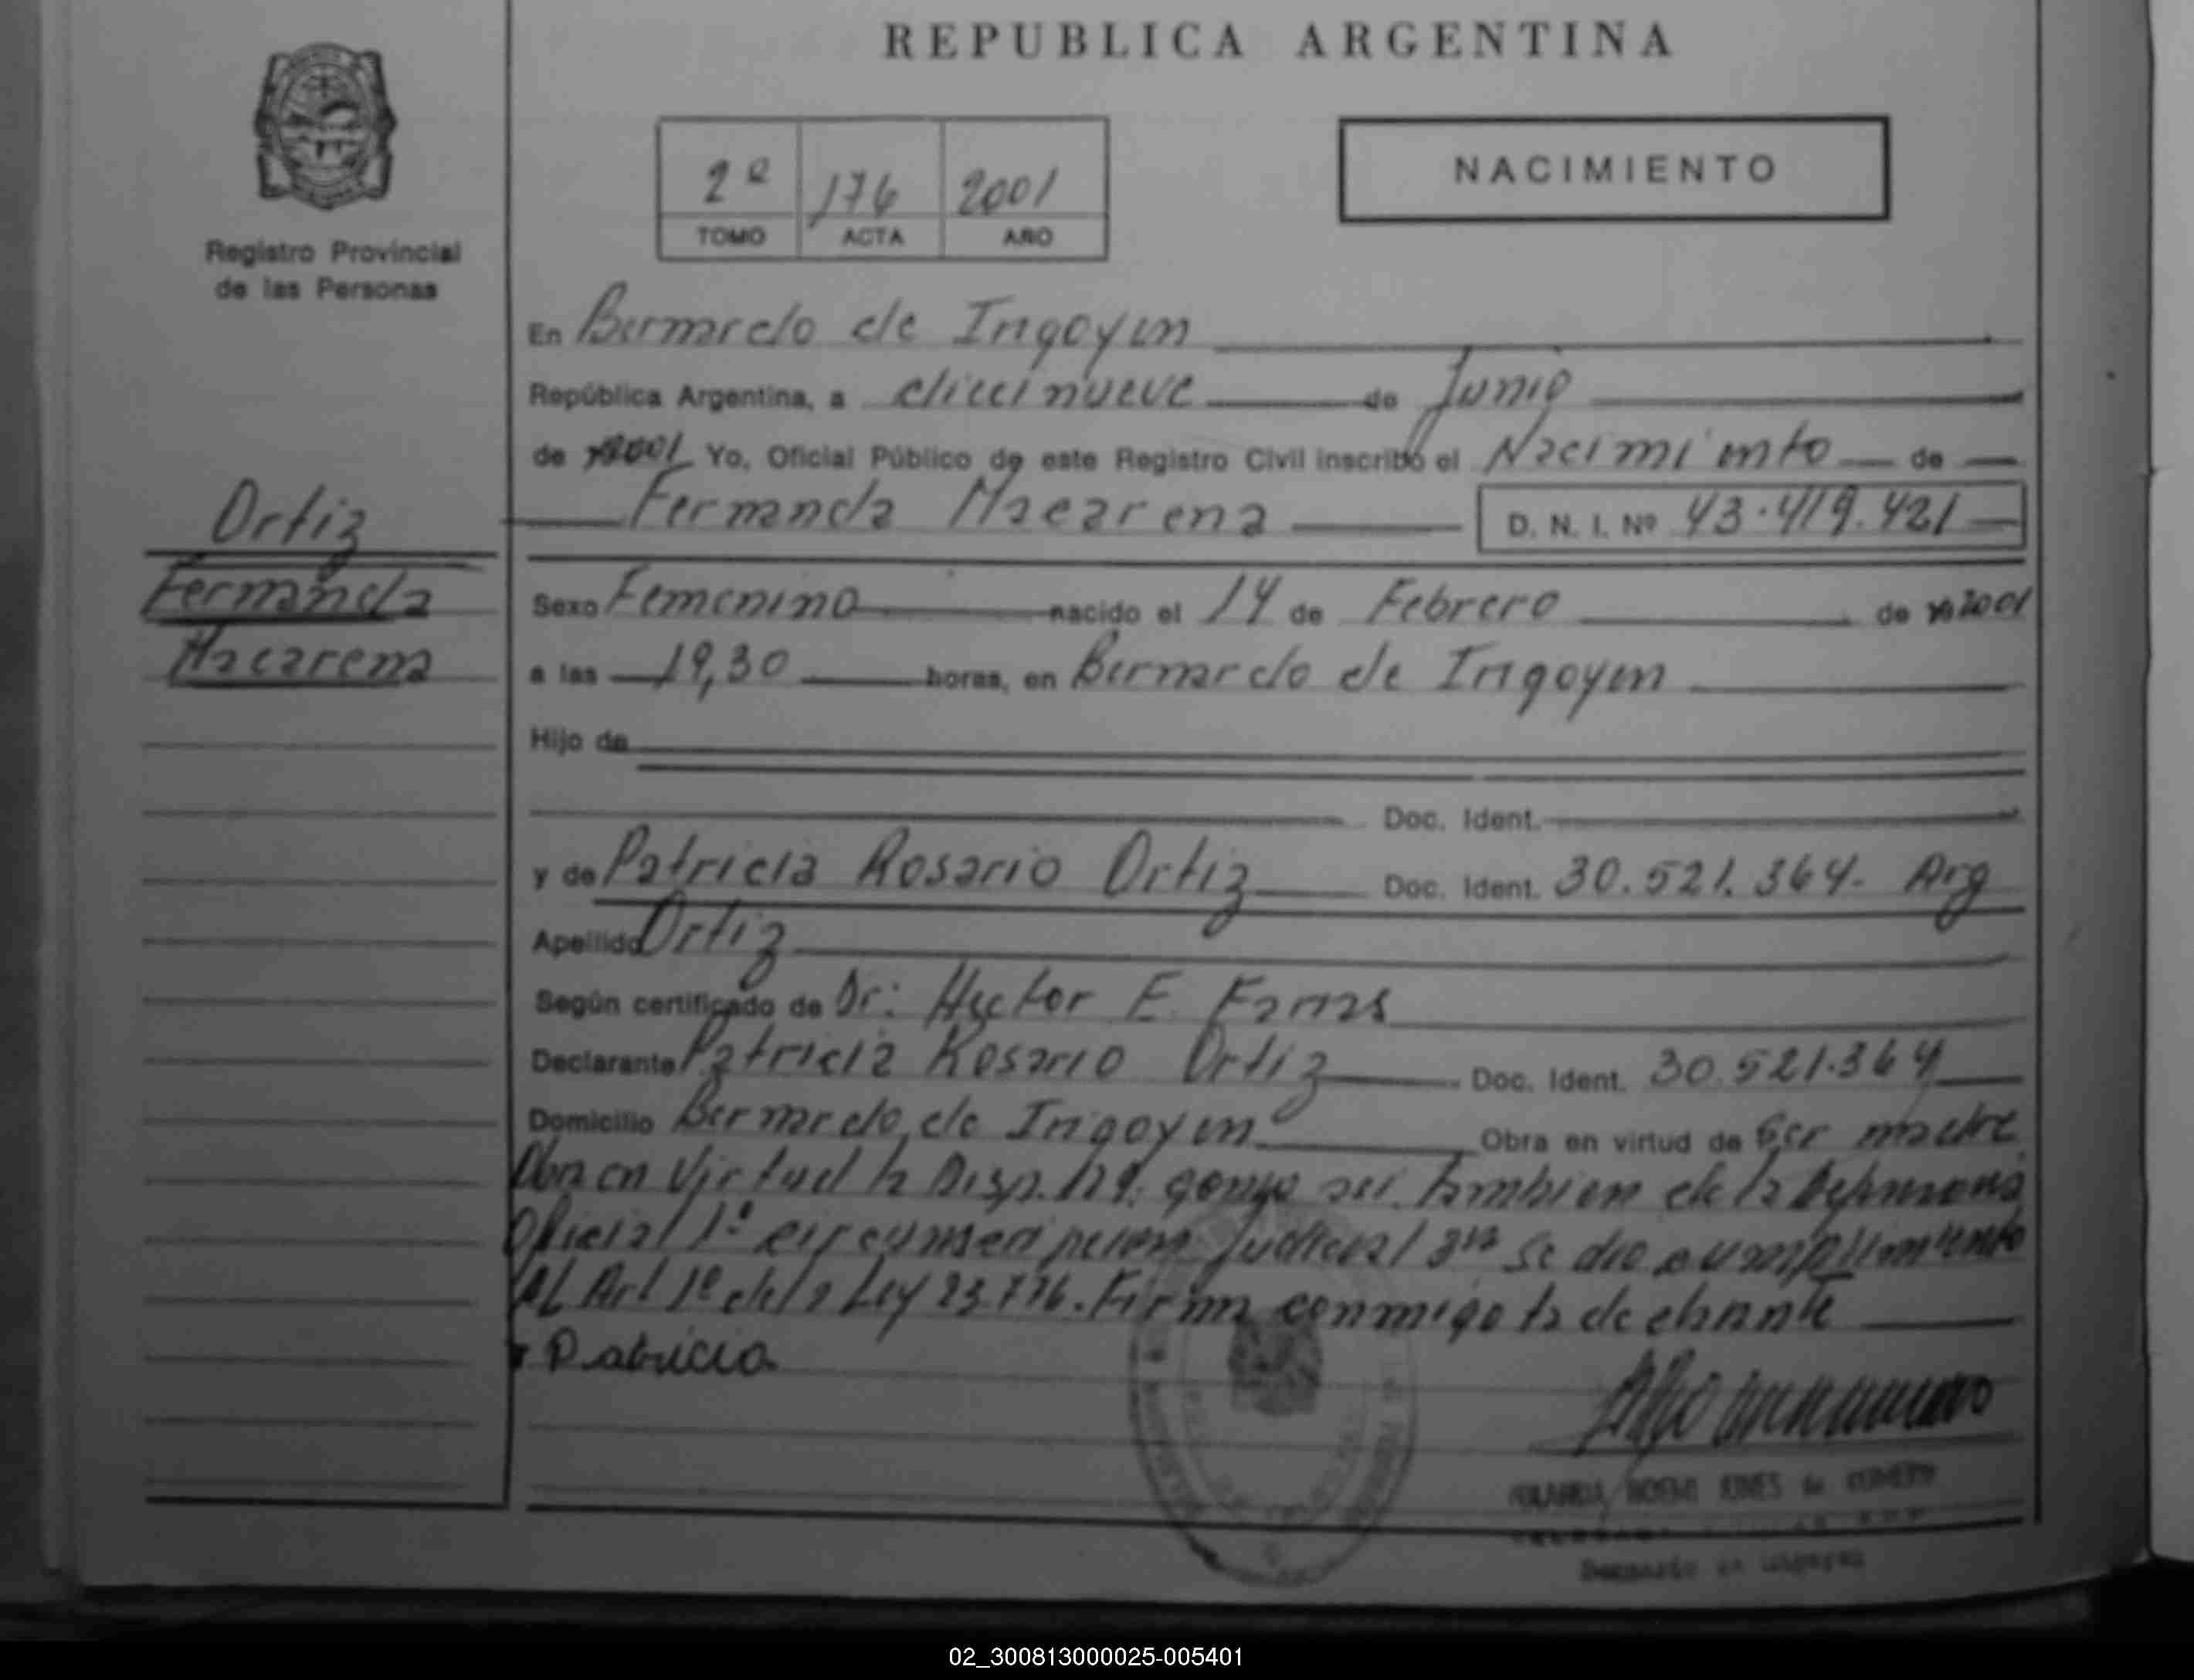 REPUBLICA ARGENTINA
2º 176 2001
TOMO ACTA AÑO
NACIMIENTO
Registro Provincial
de las Personas
En Bernardo de Irigoyen
República Argentina, a diecinueve de Junio
de 2001 Yo, Oficial Público de este Registro Civil inscribo el Nacimiento de
Fernanda Macarena D. N. I. Nº 43.419.421
Ortiz
Fernanda
Macarena
Sexo Femenino nacido el 14 de Febrero de 2001
a las 19,30 horas, en Bernardo de Irigoyen
Hijo de
Doc. Ident.
y de Patricia Rosario Ortiz Doc. Ident. 30.521.364- Arg
Apellido Ortiz
Según certificado de Dr: Hector E. Farias
Declarante Patricia Rosario Ortiz Doc. Ident. 30.521.364
Domicilio Bernardo de Irigoyen Obra en virtud de Ser madre
Obra en Virtud la Disp. tambien de la
Oficial 1º Judicial 3ra Se dio cumplimiento
Al Art 1º de la Ley 23.776. Firma conmigo la declarante
Patricia